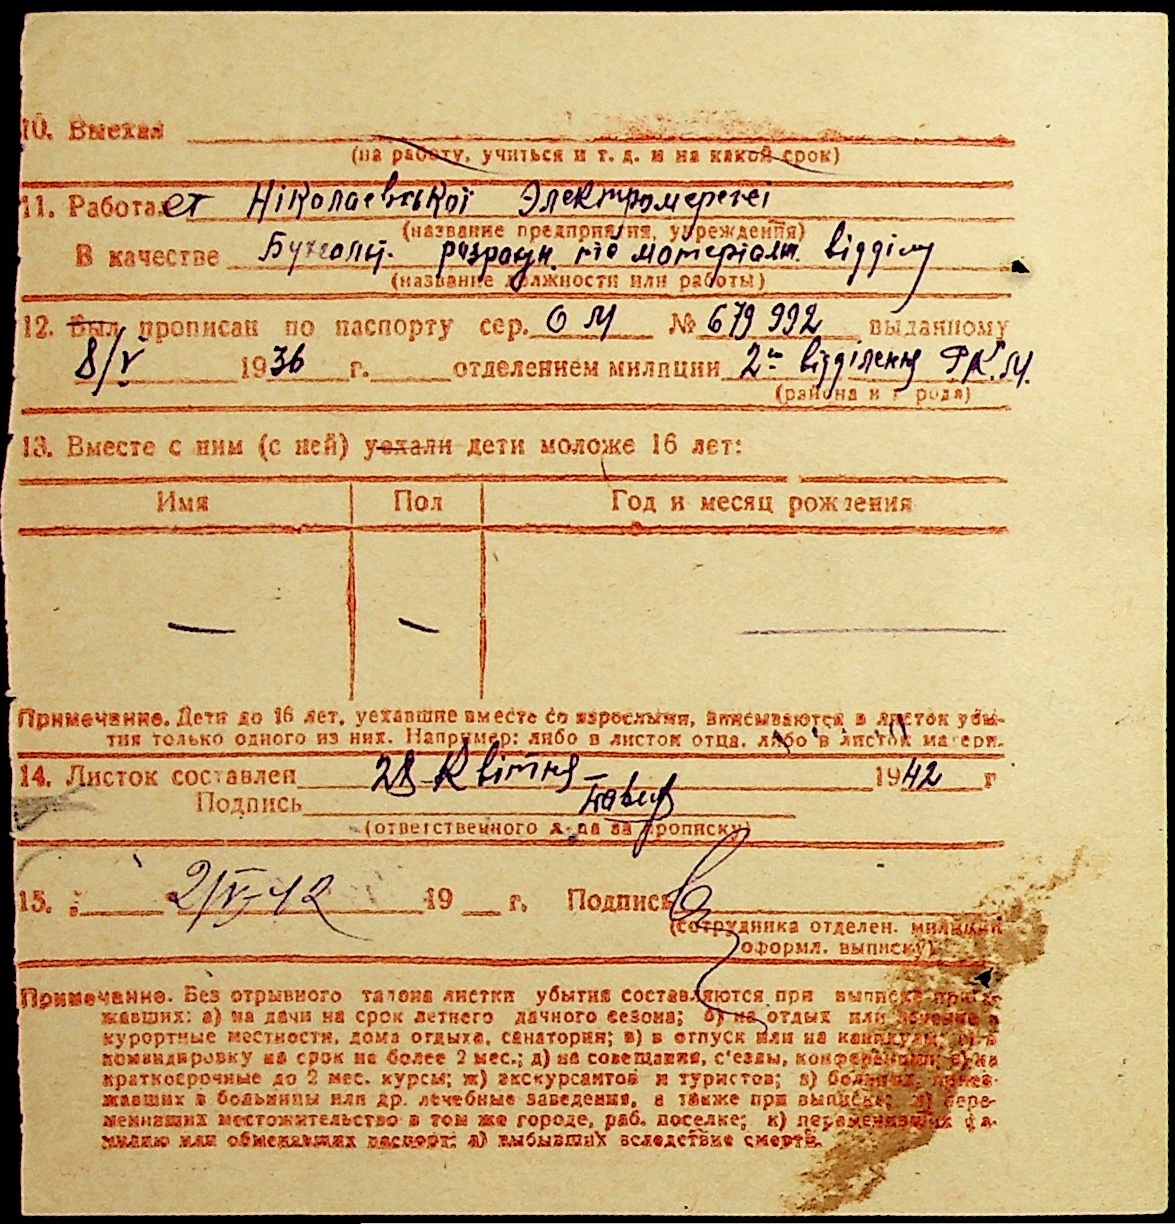 10. Выехал
(на работу, учиться и т. д. и на какой срок)
11. Работает Ніколаевської Электромережі
(название предприятия, учреждения)
В качестве Бухгалт. розрахун. по матеріалн. відділу
(название должности или работы)
12. Был прописан по паспорту сер. О М № 679 992 выданному
8/V 1936 г. отделением милиции 2го відділення Р.К.М.
(района и города)
13. Вместе с ним (с ней) уехали дети моложе 16 лет:
Имя Пол Год и месяц рождения
— — —
Примечание. Дети до 16 лет, уехавшие вместе со взрослыми, вписываются в листок убы-
тия только одного из них. Например: либо в листок отца, либо в листок матери.
14. Листок составлен 28 Квітня 1942 г
Подпись
(ответственного л-ца за прописку)
15. 2/V-42 19 г. Подпись
(сотрудника отделен. милиции
оформл. выписку)
Примечание. Без отрывного талона листки убытия составляются при выписке приез-
жавших: а) на дачи на срок летнего дачного сезона; б) на отдых или лечение в
курортные местности, дома отдыха, санатория; в) в отпуск или на каникулы; г) в
командировку на срок не более 2 мес.; д) на совещания, с'езды, конференции; е) на
краткосрочные до 2 мес. курсы; ж) экскурсантов и туристов; з) больных, приез-
жавших в больницы или др. лечебные заведения, а также при выписке; и) пере-
менивших местожительство в том же городе, раб. поселке; к) переменивших фа-
милию или обменявших паспорт; л) выбывших вследствие смерти.